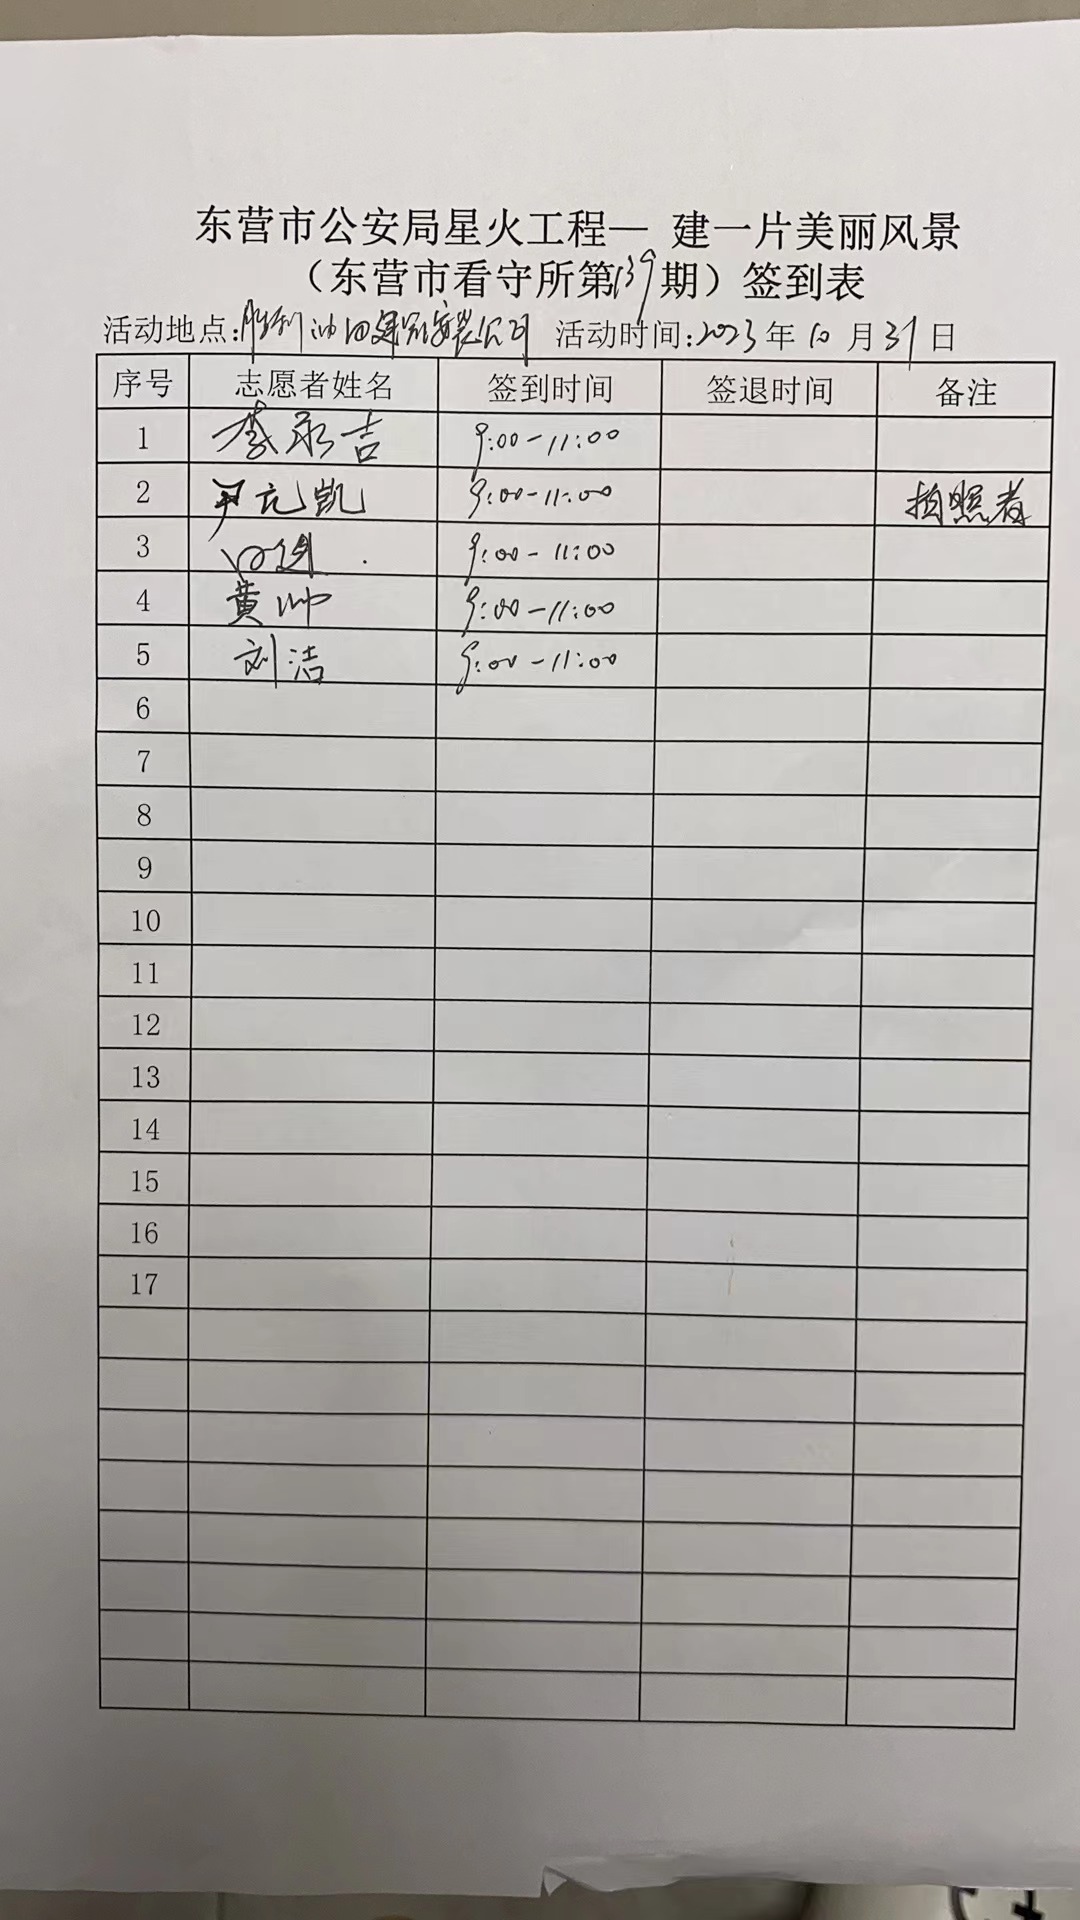 东营市公安局星火工程— 建一片美丽风景
（东营市看守所第139期）签到表
活动地点:胜利油田建设安装公司 活动时间:2023年10月31日
序号 志愿者姓名 签到时间 签退时间 备注
1 李永吉 9:00-11:00
2 尹元凯 9:00-11:00 拍照者
3 9:00-11:00
4 黄帅 9:00-11:00
5 刘洁 9:00-11:00
6
7
8
9
10
11
12
13
14
15
16
17